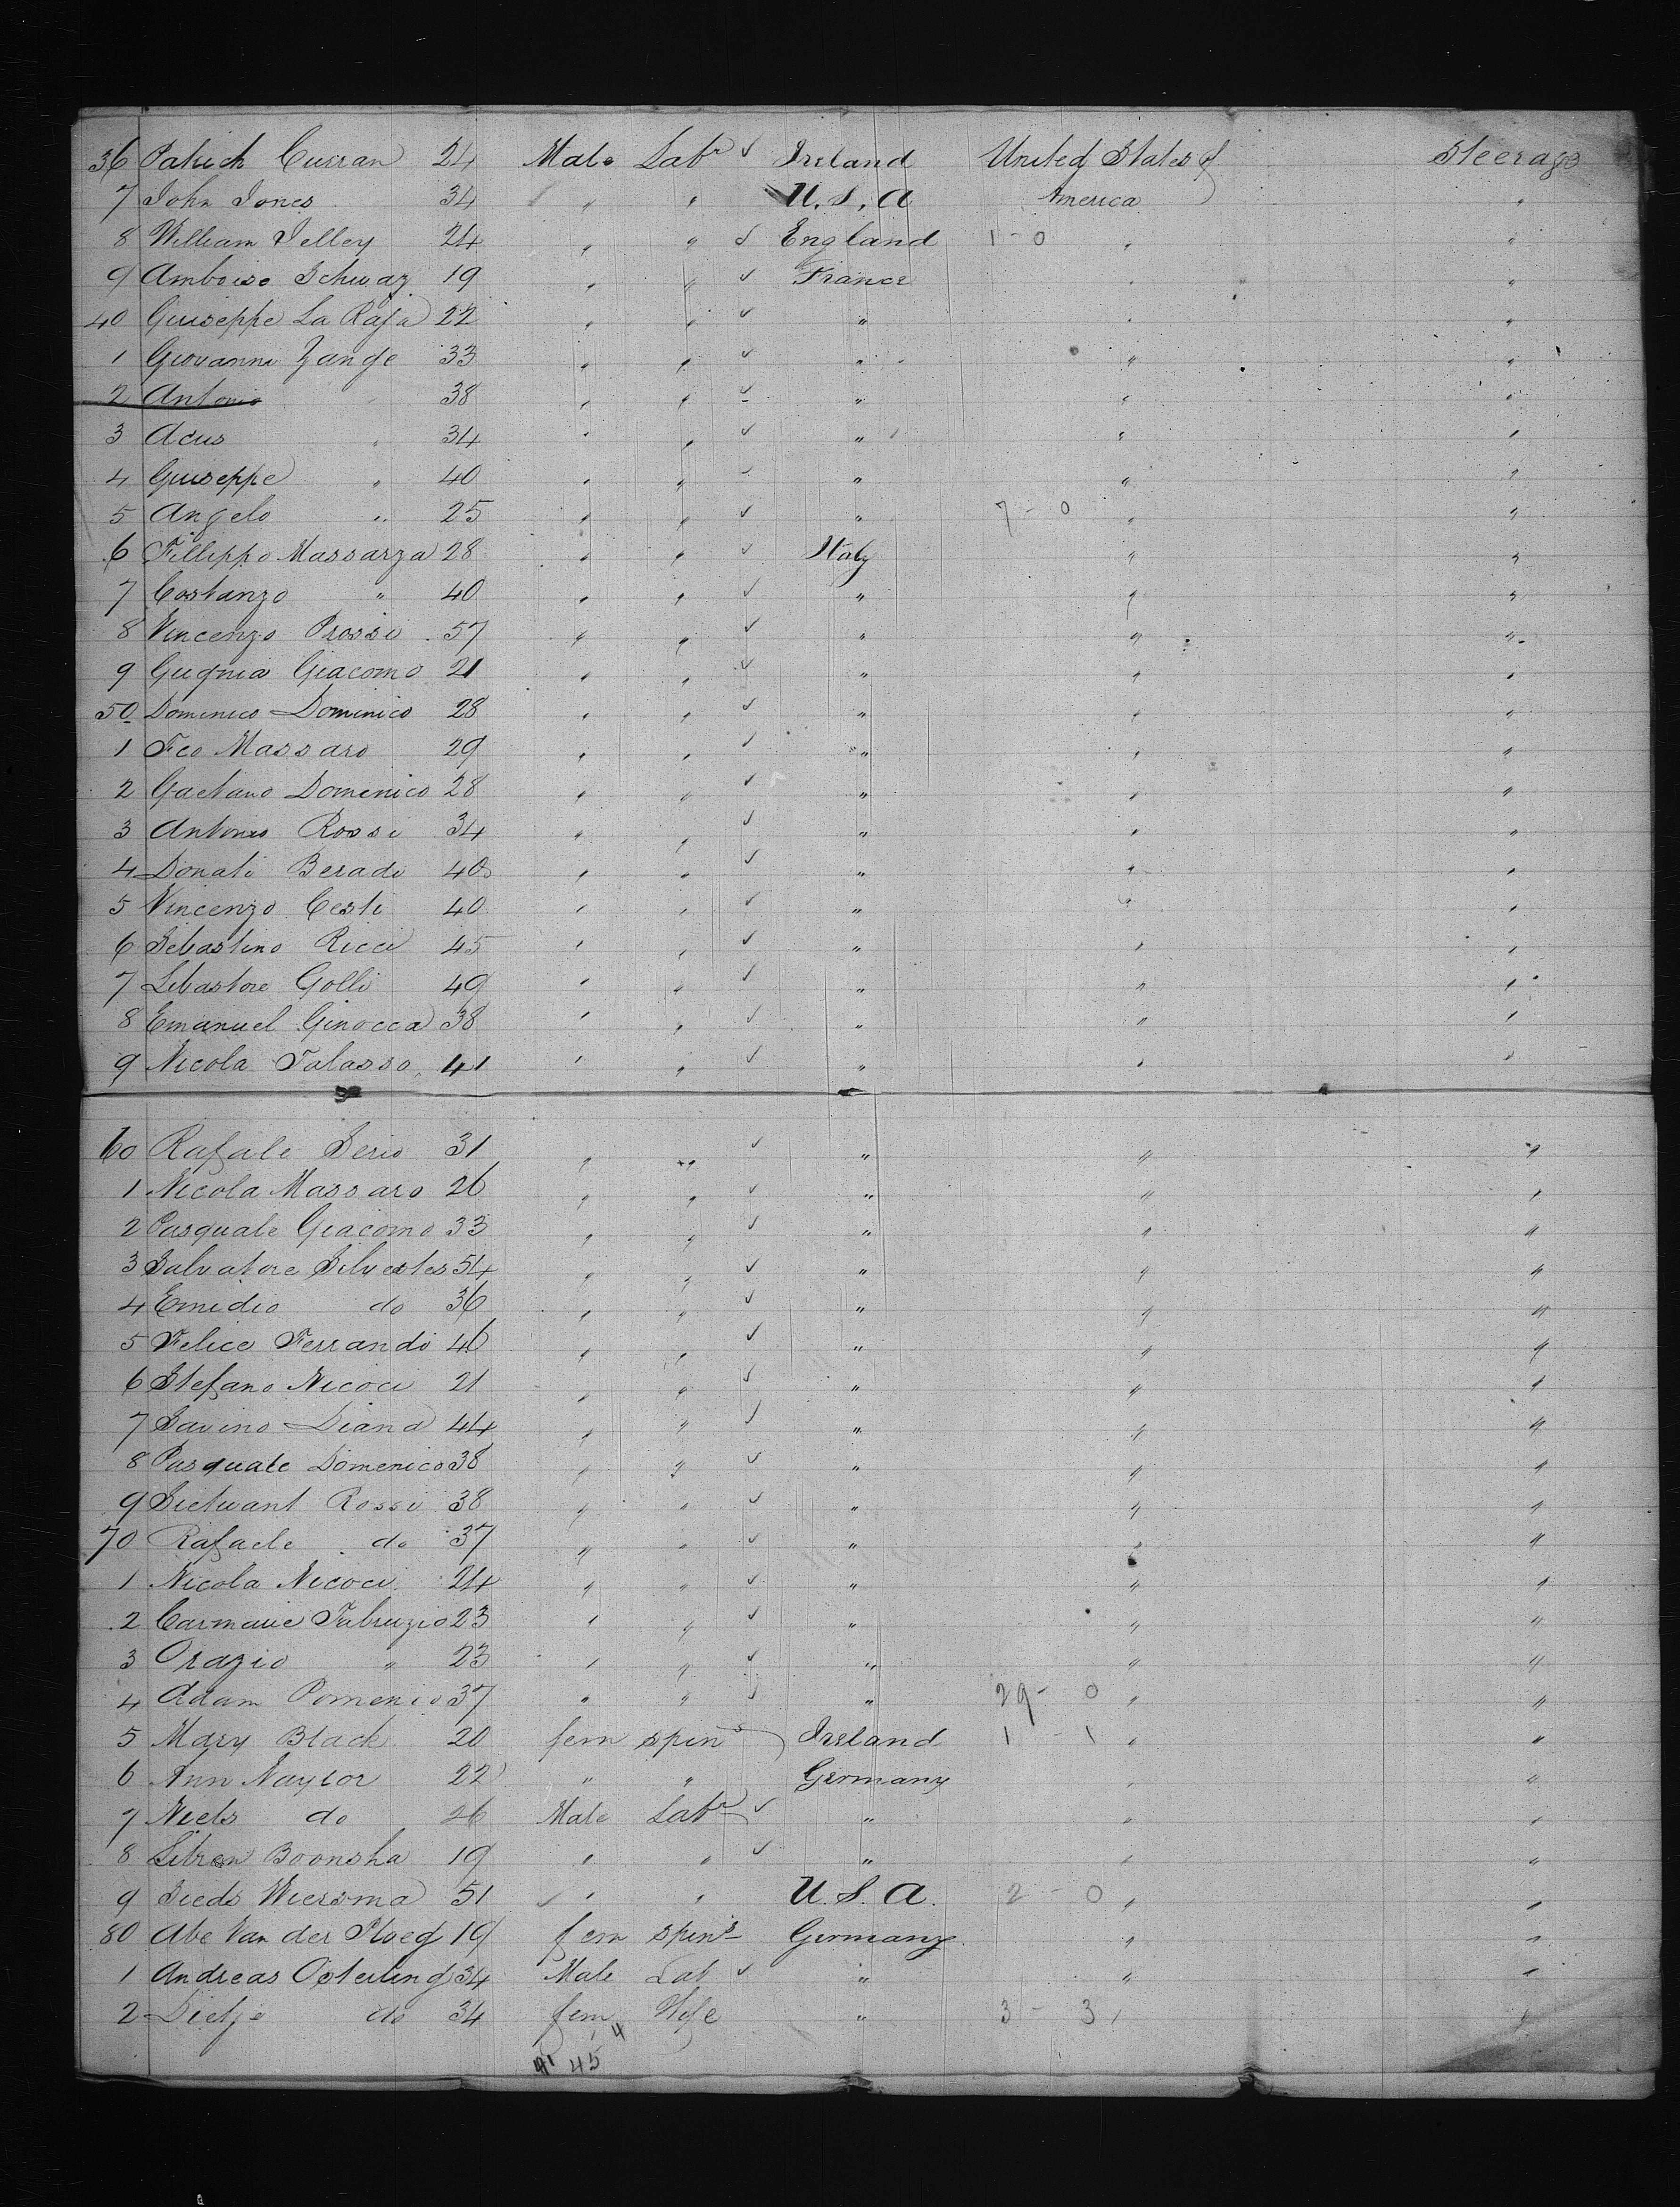 36 Patrick Curran 24 Male Labr ✓ Ireland United States of Steerage
7 John Jones 34 " " U.S.A America "
8 William Jelley 24 " " ✓ England 1 - 0 " "
9 Amboise Schwaz 19 " " ✓ France " "
40 Guiseppe La Raja 22 " " ✓ " " "
1 Giovanni Zange 33 " " ✓ " " "
2 Antonio 38 " " ✓ " " "
3 Acus " 34 " " ✓ " " "
4 Guiseppe " 40 " " ✓ " " "
5 Angelo " 25 " " ✓ " 7 - 0 " "
6 Fillippo Massarza 28 " " ✓ Italy " "
7 Costanzo " 40 " " ✓ " " "
8 Vincenzo Prossi 57 " " ✓ " " "
9 Gugnia Giacomo 21 " " ✓ " " "
50 Domenico Dominico 28 " " ✓ " " "
1 Fco Massaro 29 " " ✓ " " "
2 Gaetano Domenico 28 " " ✓ " " "
3 Antonio Rossi 34 " " ✓ " " "
4 Donati Beradi 40 " " ✓ " " "
5 Vincenzo Cesti 40 " " ✓ " " "
6 Sebastino Ricci 45 " " ✓ " " "
7 Sebastore Golli 49 " " ✓ " " "
8 Emanuel Ginocca 38 " " ✓ " " "
9 Nicola Talasso 41 " " ✓ " " "
60 Rafale Serio 31 " " ✓ " " "
1 Nicola Massaro 26 " " ✓ " " "
2 Pasquale Giacomo 33 " " ✓ " " "
3 Salvatore Silvestes 54 " " ✓ " " "
4 Emidio do 36 " " ✓ " " "
5 Felice Ferrandi 46 " " ✓ " " "
6 Stefano Nicoci 21 " " ✓ " " "
7 Savino Diana 44 " " ✓ " " "
8 Pasquale Domenico 38 " " ✓ " " "
9 Rossi 38 " " ✓ " " "
70 Rafaele do 37 " " ✓ " " "
1 Nicola Nicoci 24 " " ✓ " " "
2 Carmaue Fabruzio 23 " " ✓ " " "
3 Orazio " 23 " " ✓ " " "
4 Adam Pomenio 37 " " ✓ " 29 - 0 " "
5 Mary Black 20 fem spins Ireland 1 - 1 " "
6 Ann Naylor 22 " " Germany " "
7 Niels do 26 Male Labr ✓ " " "
8 Boonsha 19 " " ✓ " " "
9 Sieds Wiersma 51 ✓ " " U.S.A. 2 - 0 " "
80 Abe Van der Ploeg 19 fem spins Germany " "
1 Andreas Osterling 34 Male Lab ✓ " " "
2 Dietje do 34 fem Wife " 3 - 3 " "
41 45 4